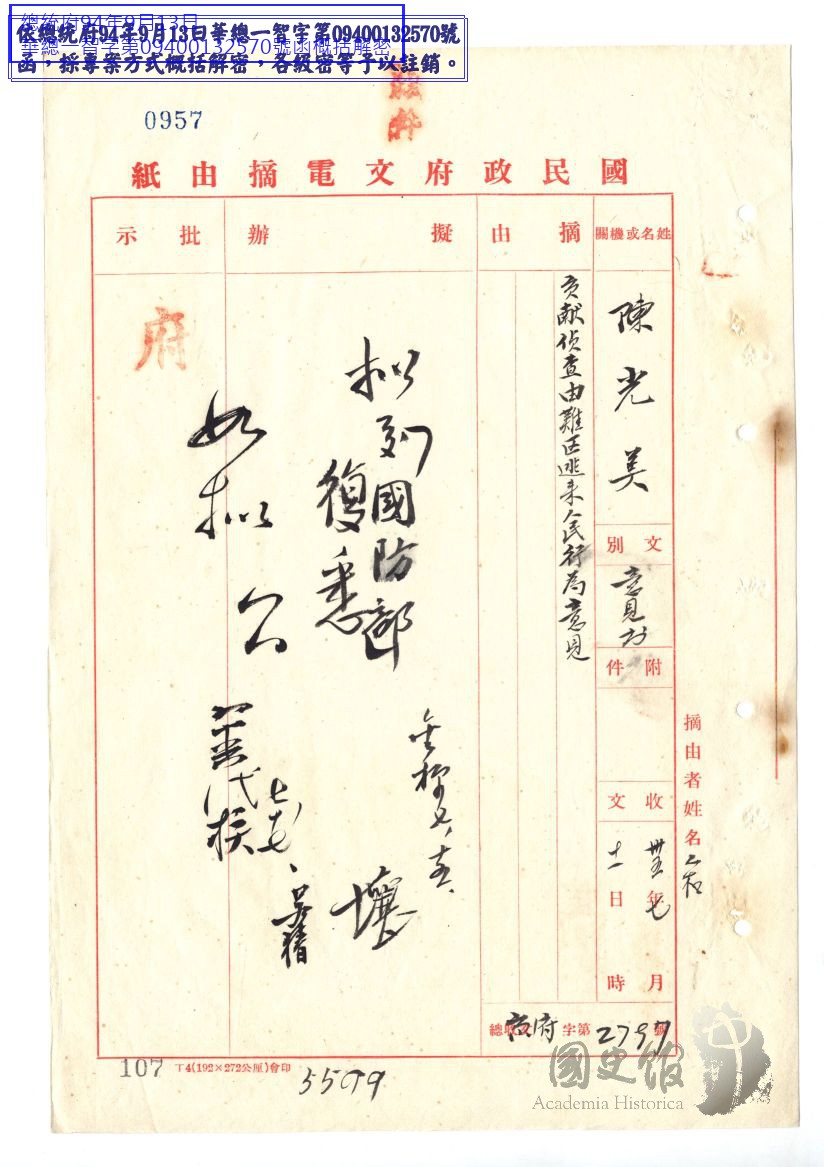 總統府94年9月13日
華總一智字第09400132570號函概括解密
依總統府94年9月13日華總一智字第09400132570號
函，採專案方式概括解密，各級密等予以註銷。
0957
國民政府文電摘由紙
姓名或機關
陳光美
文別
意見書
附件
收文
卅五年七月
十一日時
摘由
貢献偵查由難区逃来人民行為意見
擬辦
拟列國防部
復悉
批示
府
如拟
代
摘由者姓名
總收 府字第2797號
107
T4(192×272公厘)會印
5579
國史館
Academia Historica